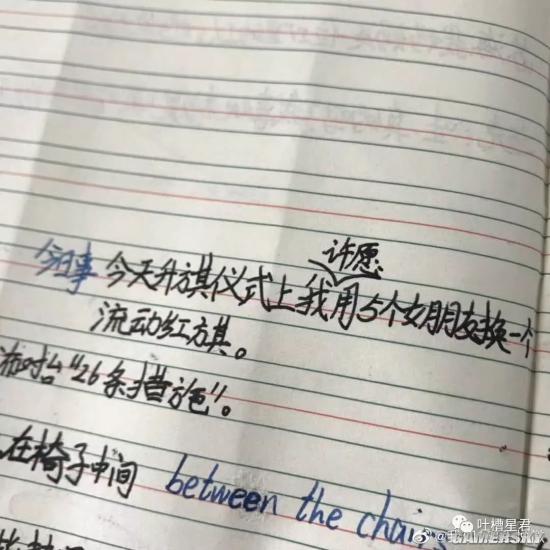 许愿
今日事 今天升旗仪式上我用5个女朋友换一个
流动红旗。
对台"26条措施"。
在椅子中间 between the chairs
吐槽星君
GAMERSKY